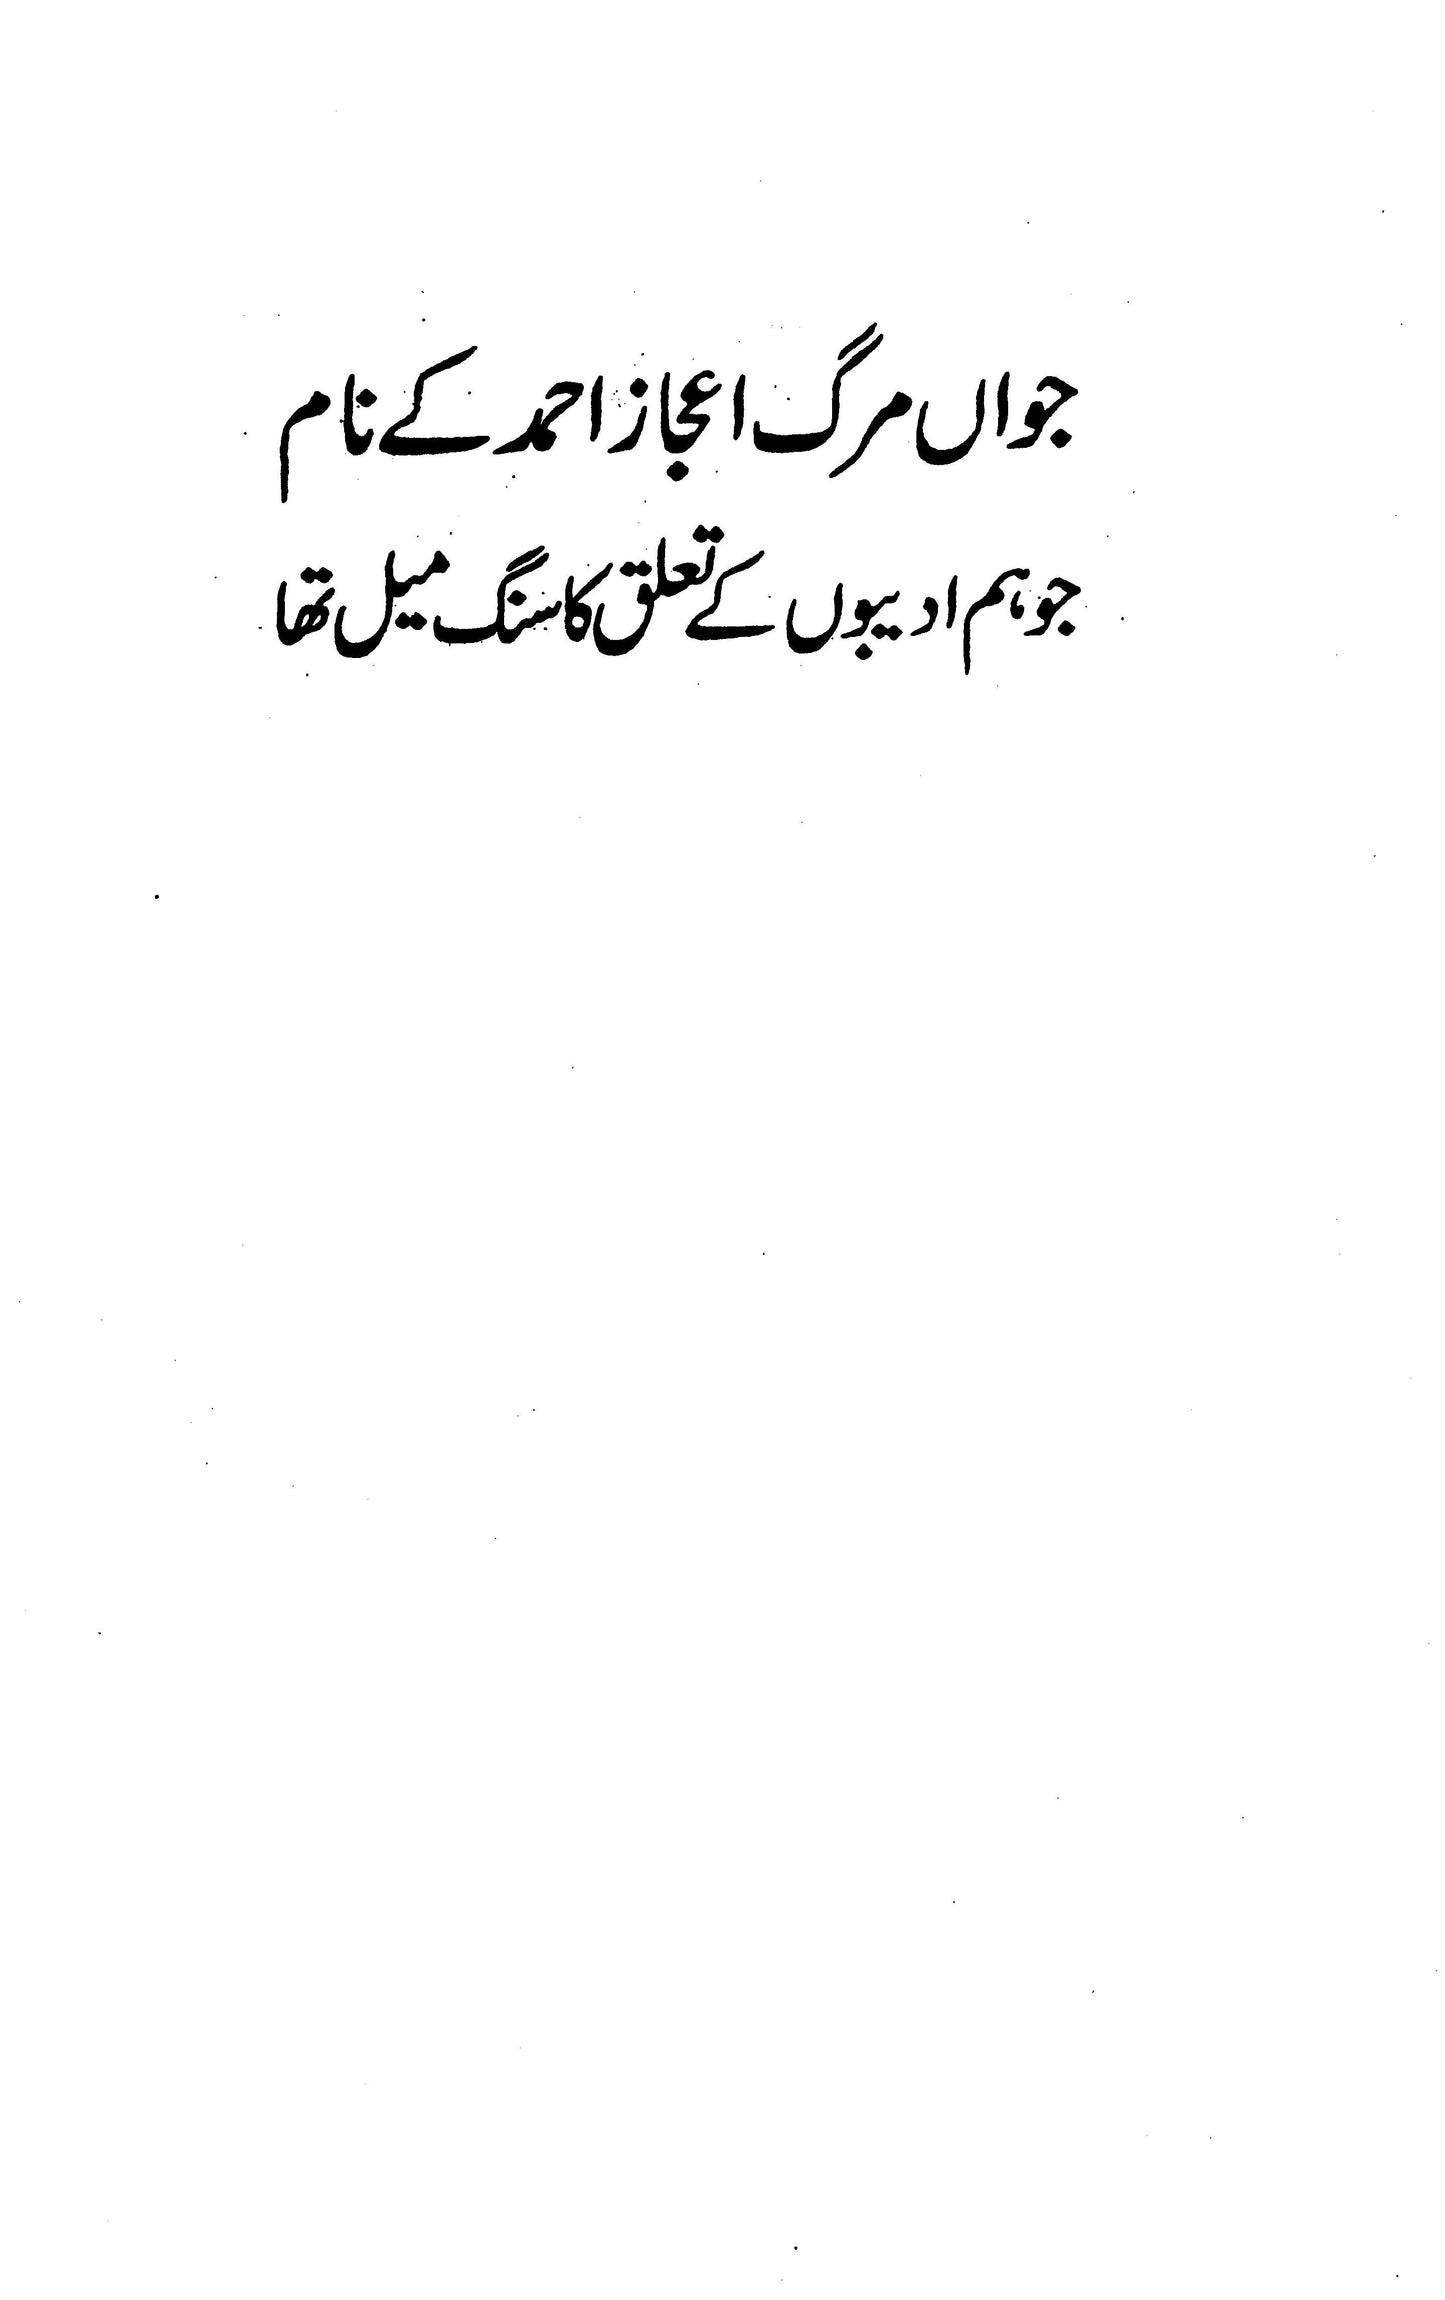 جواں مرگ اعجاز احمد کے نام
جو ہم ادیبوں کے تعلق کا سنگ میل تھا